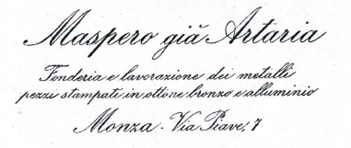 Maspero già Artaria
Fonderia e lavorazione dei metalli
pezzi stampati in ottone bronzo e alluminio
Monza - Via Piave, 7